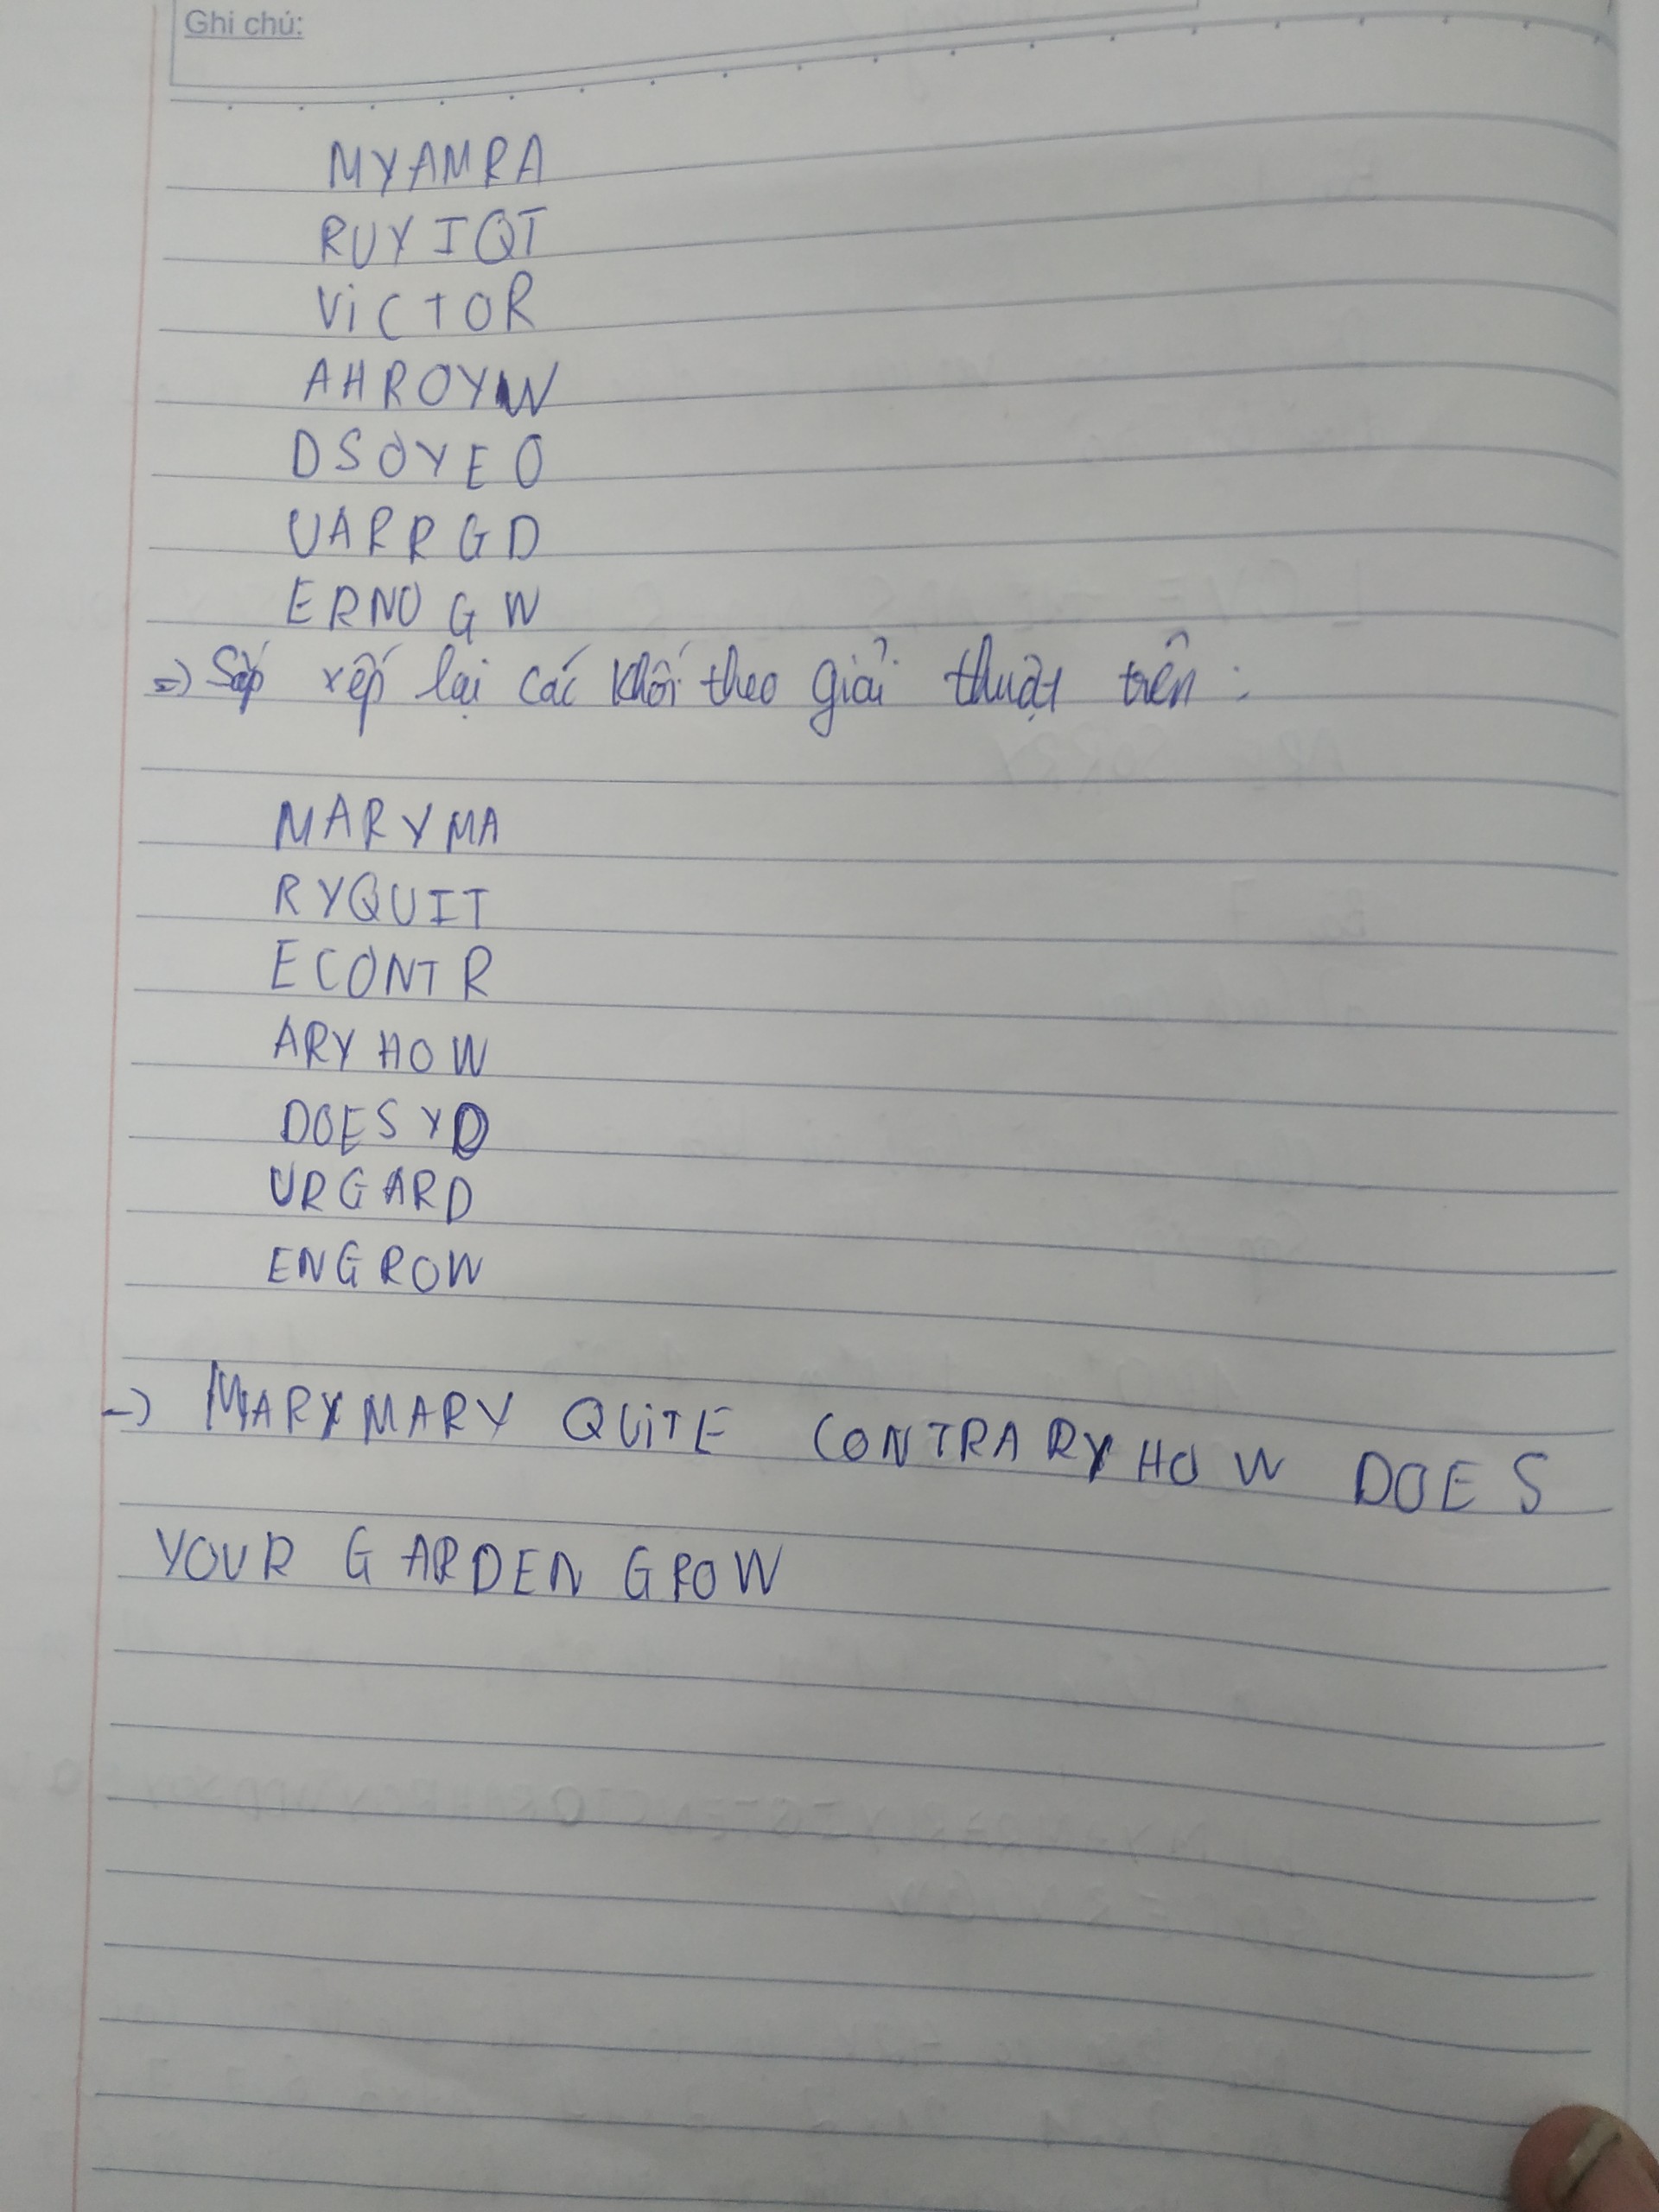 Ghi chú:
MYAMRA
RUYIQT
ViCTOR
AHROYW
DSOYEO
UARRGD
ERNOGW
=) Sắp xếp lại các khối theo giải thuật trên :
MARYMA
RYQUIT
ECONTR
ARYHOW
DOESYO
URGARD
ENGROW
-) MARYMARY QUiTE CONTRARYHOW DOES
YOUR GARDEN GROW